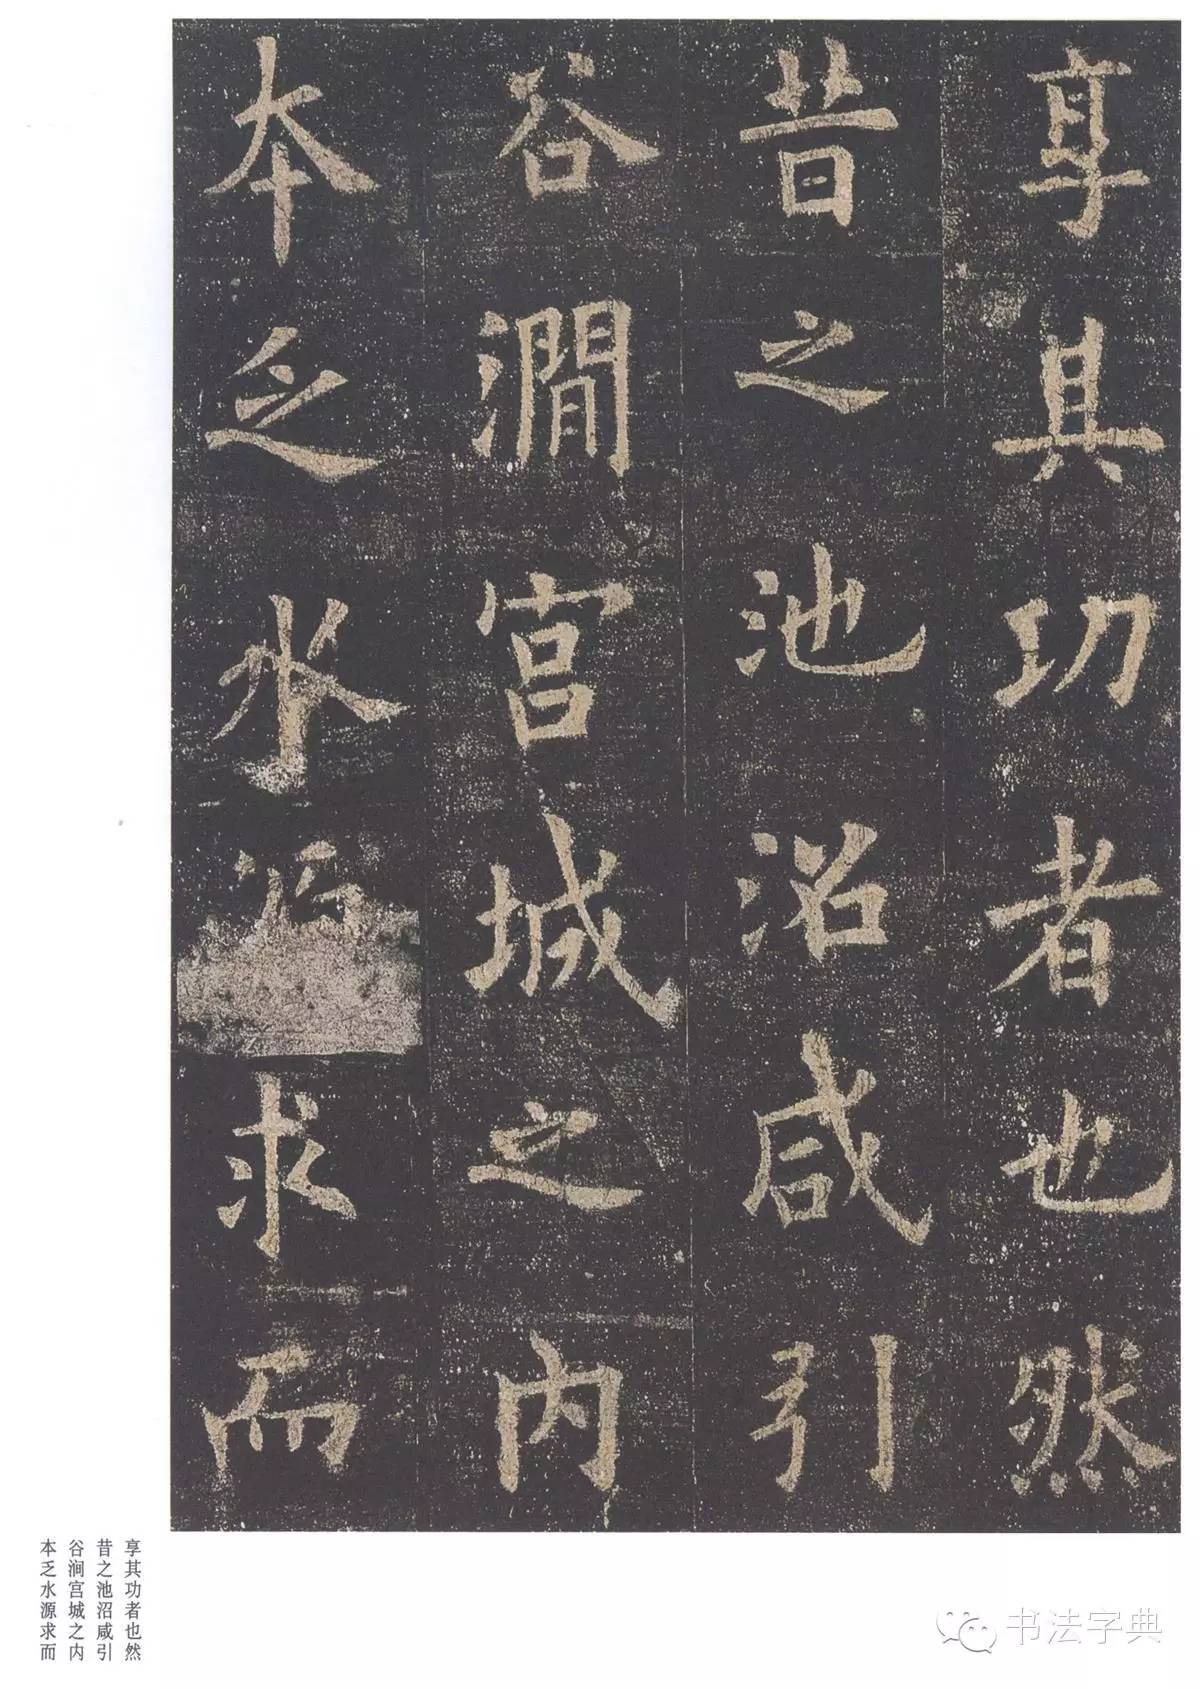 享其功者也然
昔之池沼咸引
谷澗宫城之内
本乏水 求而
享其功者也然
昔之池沼咸引
谷涧宫城之内
本乏水源求而
书法字典